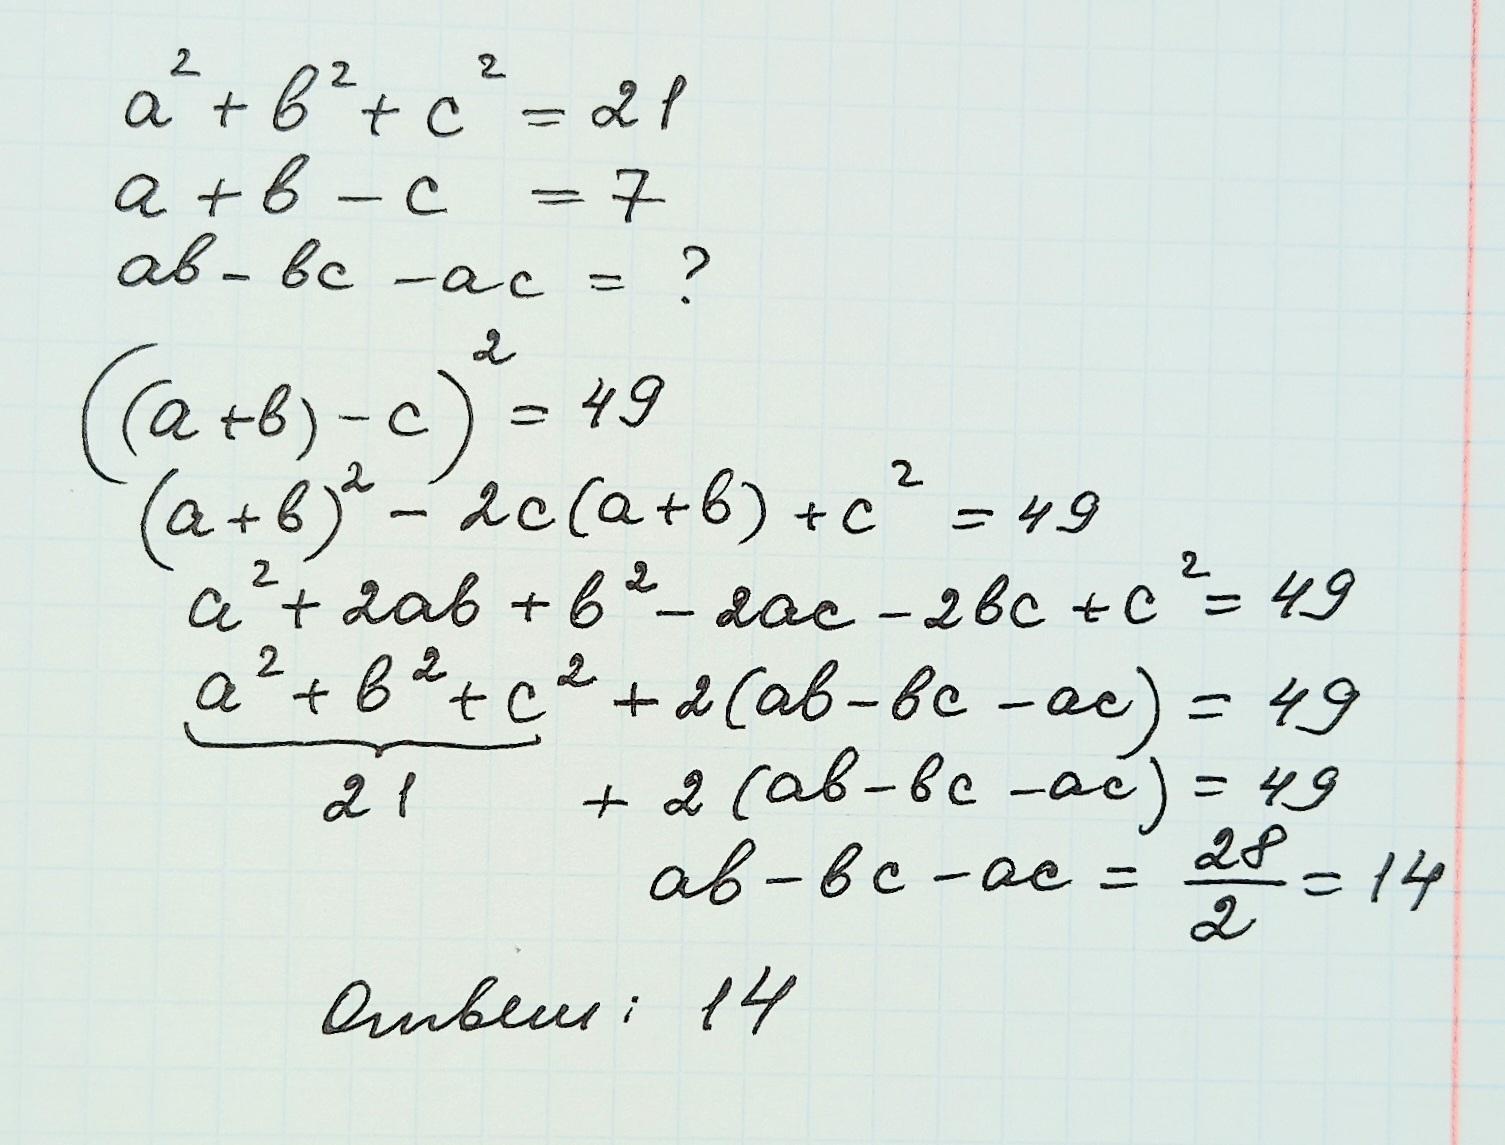 a² + в² + c² = 21
a + в - c = 7
aв - вc - ac = ?
((a+в) - c)² = 49
(a+в)² - 2c(a+в) + c² = 49
a² + 2aв + в² - 2ac - 2вc + c² = 49
a² + в² + c² + 2(aв - вc - ac) = 49
21 + 2(aв - вc - ac) = 49
aв - вc - ac = 28/2 = 14
Ответ: 14